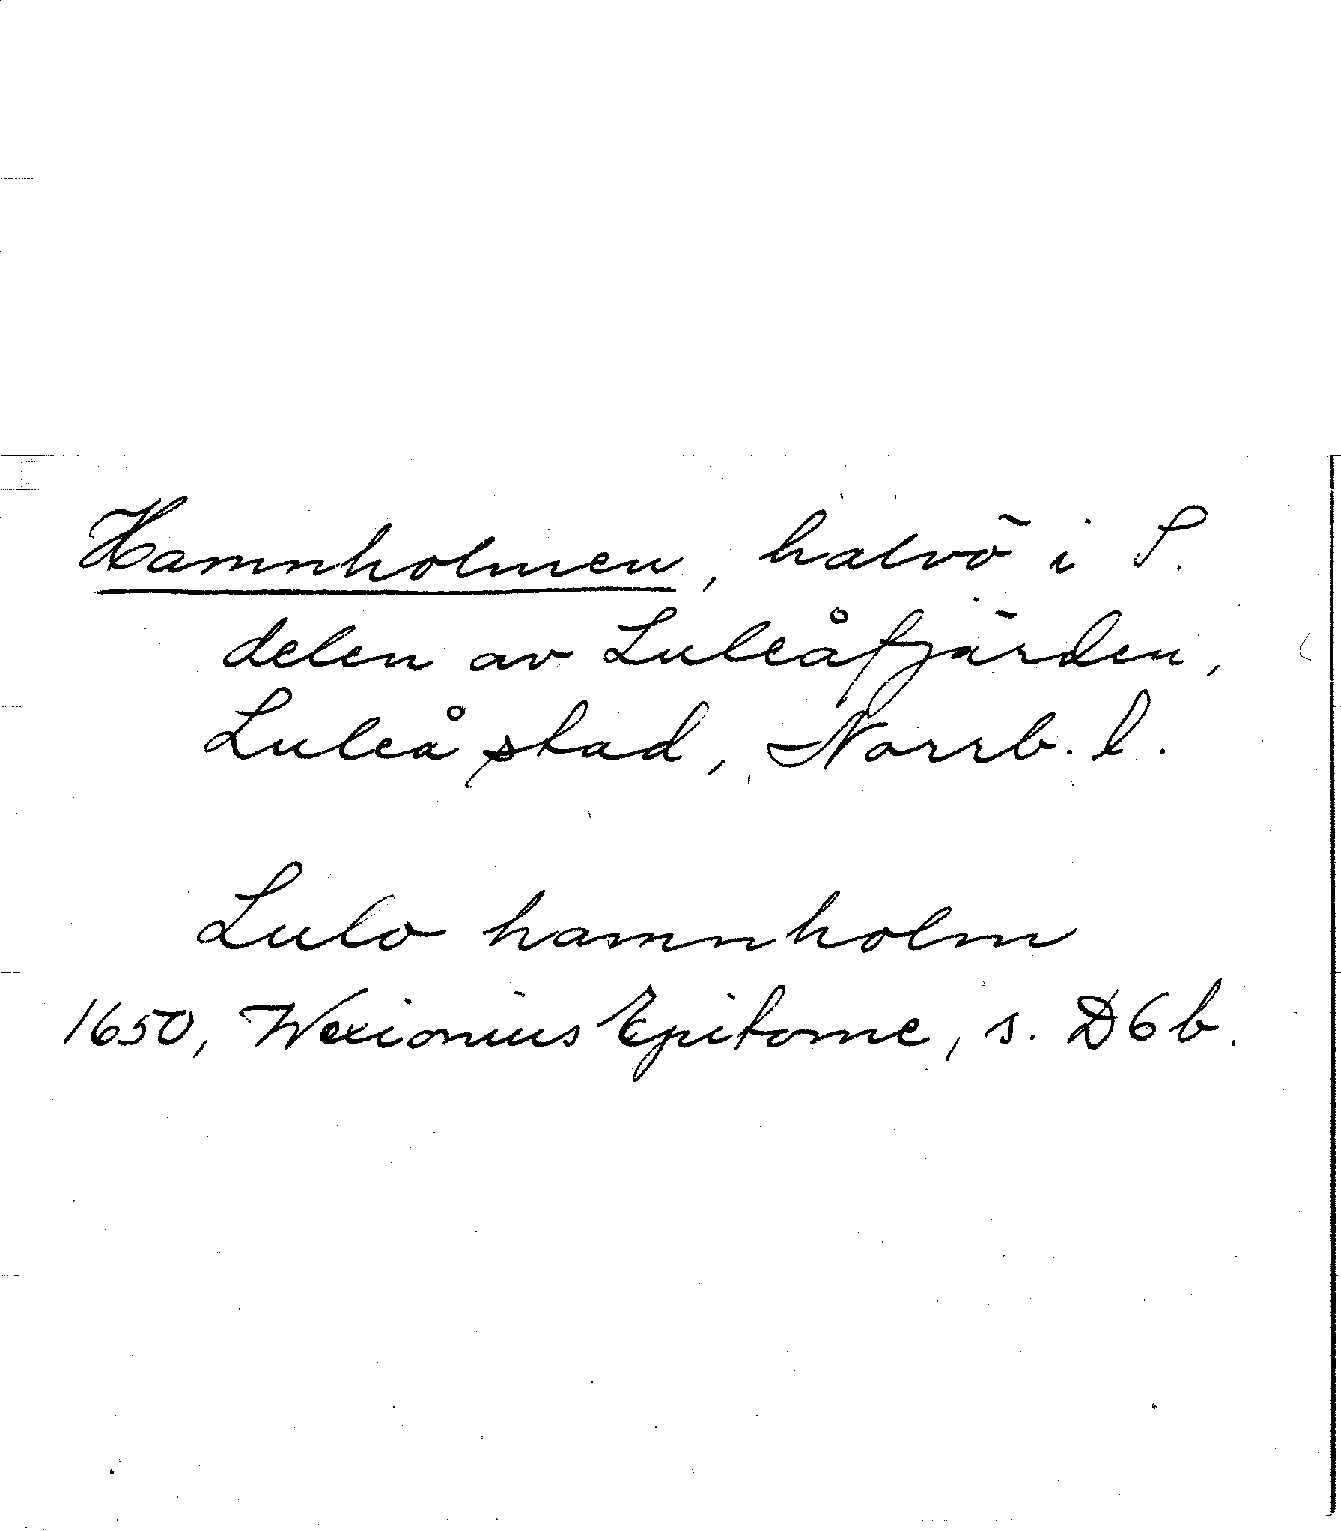 Hamnholmen, halvö i S.
delen av Luleåfjärden,
Luleå stad, Norrb. l.
Lulo hamnholm
1650, Wexionius Epitome, s. D6b.